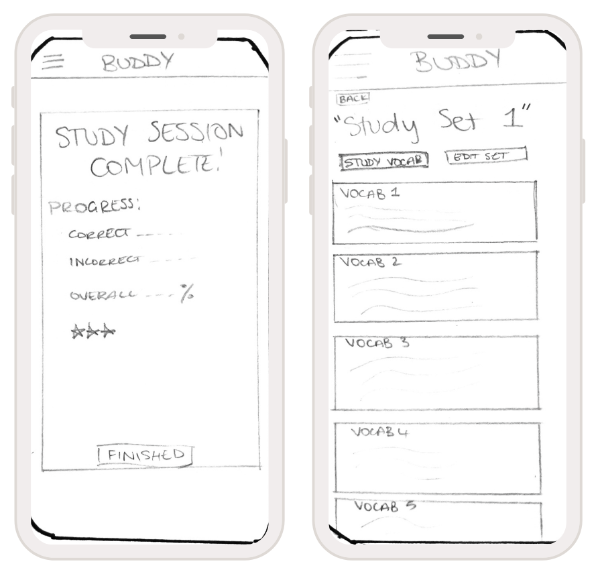 BUDDY
STUDY SESSION
COMPLETE!
PROGRESS:
CORRECT ----
INCORRECT ----
OVERALL --- %
FINISHED
BUDDY
BACK
"Study Set 1"
STUDY VOCAB
EDIT SET
VOCAB 1
VOCAB 2
VOCAB 3
VOCAB 4
VOCAB 5